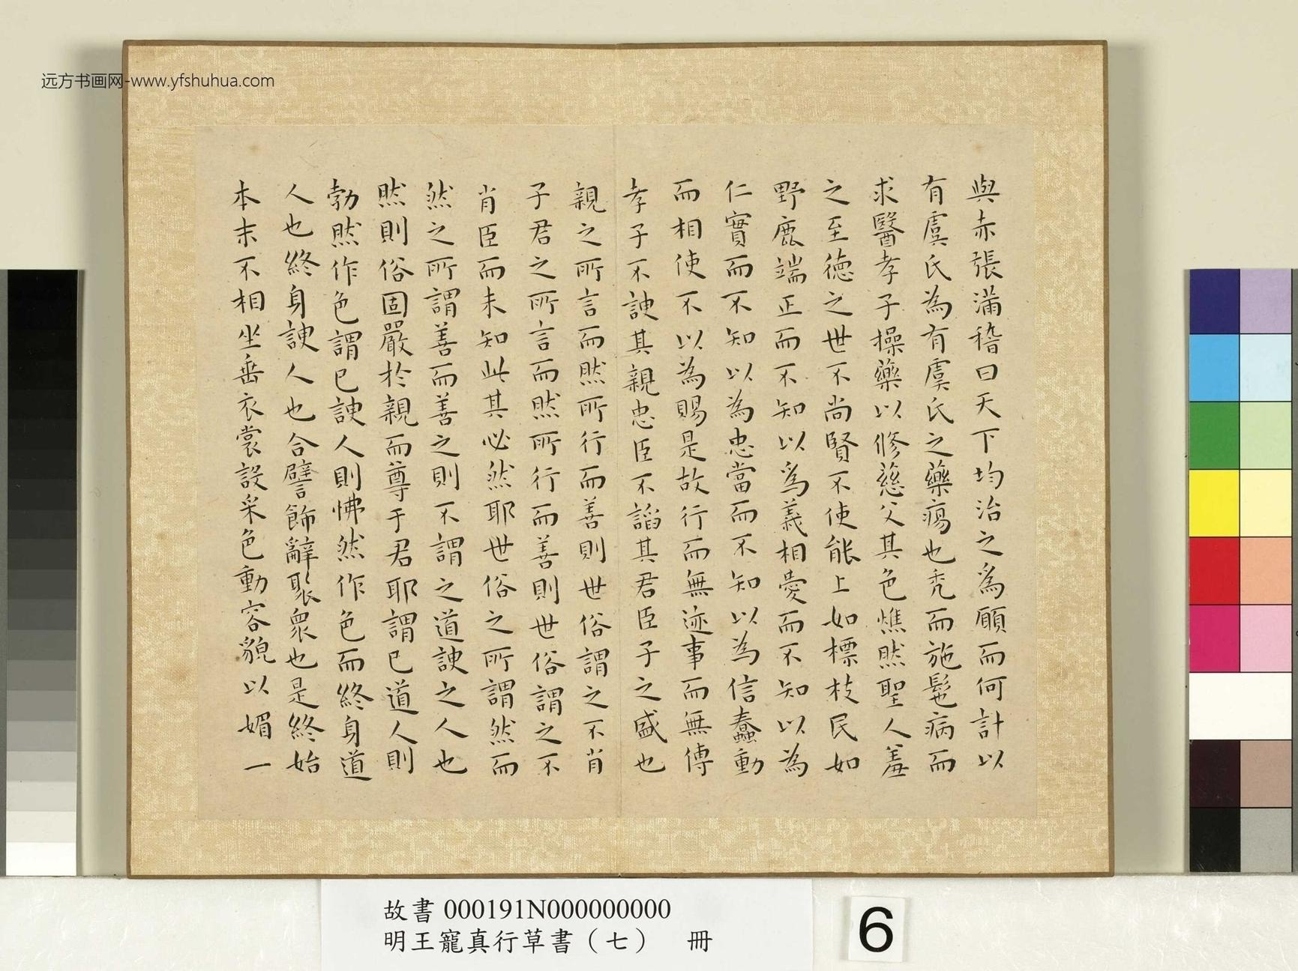 远方书画网-www.yfshuhua.com
與赤張滿稽曰天下均治之為願而何計以
有虞氏為有虞氏之藥瘍也禿而施髢病而
求醫孝子操藥以修慈父其色燋然聖人羞
之至德之世不尚賢不使能上如標枝民如
野鹿端正而不知以為義相愛而不知以為
仁實而不知以為忠當而不知以為信蠢動
而相使不以為賜是故行而無迹事而無傳
孝子不諛其親忠臣不諂其君臣子之盛也
親之所言而然所行而善則世俗謂之不肖
子君之所言而然所行而善則世俗謂之不
肖臣而未知此其必然耶世俗之所謂然而
然之所謂善而善之則不謂之道諛之人也
然則俗固嚴於親而尊于君耶謂己道人則
勃然作色謂己諛人則怫然作色而終身道
人也終身諛人也合譬飾辭聚衆也是終始
本末不相坐垂衣裳設采色動容貌以媚一
故書000191N000000000
明王寵真行草書（七） 冊
6